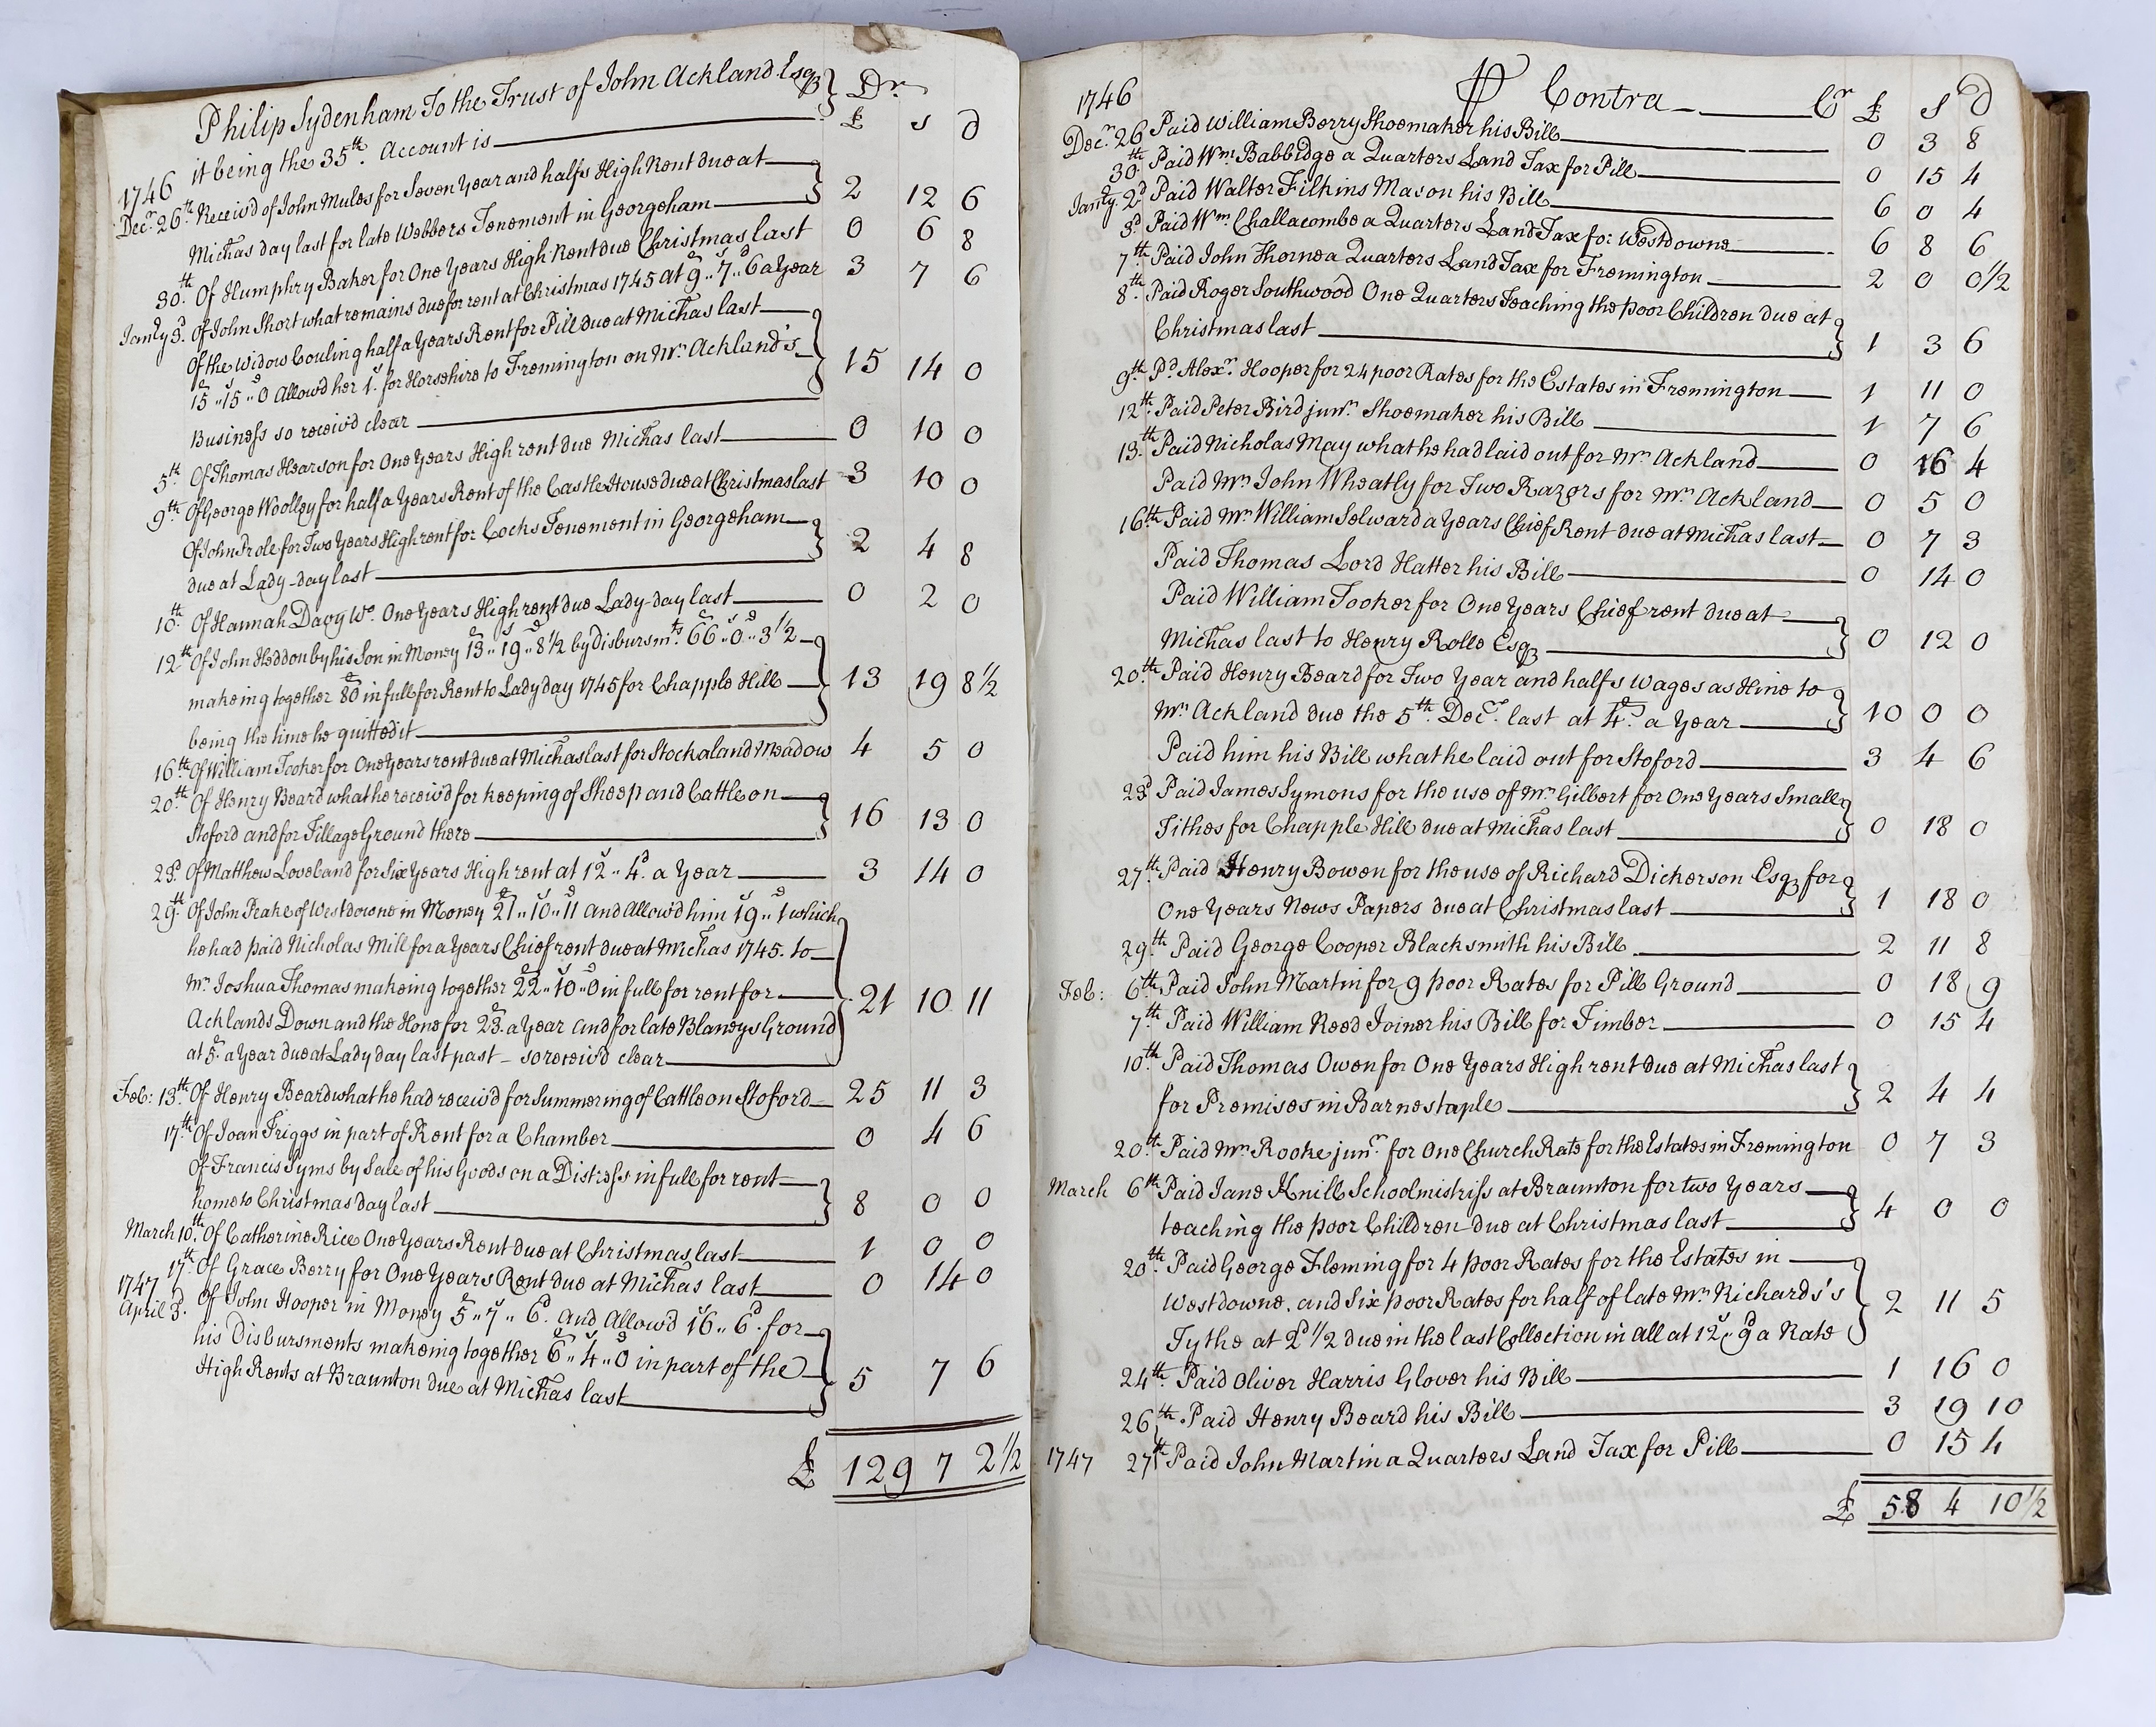 Philip Sydenham To the Trust of John Ackland Esqr Dr
it being the 35th. Account is £ s d
1746
Decr. 26th Receiv'd of John Mules for Seven Year and halfs High Rent due at
Michas day last for late Webbers Tenement in Georgeham 2 12 6
30th. Of Humphry Baker for One Years High Rent due Christmas last 0 6 8
Janry 3d. Of John Short what remains due for rent at Christmas 1745 at 9£..7s..6d a Year 3 7 6
Of the Widow Couling half a Years Rent for Pill due at Michas last
15£..15s..0d Allow'd her 1s. for Horsehire to Fremington on Mr. Ackland's
Business so receiv'd clear 15 14 0
5th. Of Thomas Hearson for One Years High rent due Michas last 0 10 0
9th. Of George Woolley for half a Years Rent of the Castle House due at Christmas last 3 10 0
Of John Prole for Two Years High rent for Cocks Tenement in Georgeham
due at Lady-day last 2 4 8
10th. Of Hannah Davy Wo. One Years High rent due Lady-day last 0 2 0
12th Of John Heddon by his Son in Money 13£..19s..8d½ by Disbursmts. 66£..0s..3d½
makeing together 80£ in full for Rent to Lady day 1745 for Chapple Hill
being the time he quitted it 13 19 8½
16th. Of William Tooker for One Years rent due at Michas last for Stockaland Meadow 4 5 0
20th. Of Henry Beard what he receiv'd for keeping of Sheep and Cattle on
Stoford and for Tillage Ground there 16 13 0
23d. Of Matthew Loveband for Six Years High rent at 12s..4d. a Year 3 14 0
29th. Of John Peake of Westdowne in Money 21£..10s..11d and Allow'd him 19s..1d which
he had paid Nicholas Mill for a Years Chief rent due at Michas 1745. to
Mr. Joshua Thomas makeing together 22£..10s..0d in full for rent for
Acklands Down and the Home for 23£. a Year and for late Blaneys Ground
at 5£. a Year due at Lady day last past - so receiv'd clear 21 10 11
Feb: 13th. Of Henry Beard what he had receiv'd for Summering of Cattle on Stoford 25 11 3
17th. Of Joan Triggs in part of Rent for a Chamber 0 4 6
Of Francis Syms by Sale of his Goods on a Distress in full for rent
home to Christmas day last 8 0 0
March 10th. Of Catherine Rice One Years Rent due at Christmas last 1 0 0
17th. Of Grace Berry for One Years Rent due at Michas last 0 14 0
1747
April 3d. Of John Hooper in Money 5£..7s..6d. and Allow'd 16s..6d. for
his Disbursments makeing together 6£..4s..0d in part of the
High Rents at Braunton due at Michas last 5 7 6
£ 129 7 2½
1746 P Contra Cr £ s d
Decr. 26 Paid William Berry Shoemaker his Bill 0 3 8
30th. Paid Wm. Babbidge a Quarters Land Tax for Pill 0 15 4
Janry. 2d Paid Walter Filkins Mason his Bill 6 0 4
3d. Paid Wm. Challacombe a Quarters Land Tax for Westdowne 6 8 6
7th. Paid John Thorne a Quarters Land Tax for Fremington 2 0 0½
8th. Paid Roger Southwood One Quarters Teaching the poor Children due at
Christmas last 1 3 6
9th. Pd. Alexr. Hooper for 24 poor Rates for the Estates in Fremington 1 11 0
12th. Paid Peter Bird junr. Shoemaker his Bill 1 7 6
13th. Paid Nicholas May what he had laid out for Mr. Ackland 0 16 4
Paid Mr. John Wheatly for Two Razors for Mr. Ackland 0 5 0
16th Paid Mr William Selward a Years Chief Rent due at Michas last 0 7 3
Paid Thomas Lord Hatter his Bill 0 14 0
Paid William Tooker for One Years Chief rent due at
Michas last to Henry Rolle Esqr 0 12 0
20th. Paid Henry Beard for Two Year and halfs Wages as Hine to
Mr. Ackland due the 5th. Decr. last at 4£. a Year 10 0 0
Paid him his Bill what he laid out for Stoford 3 4 6
23d Paid James Symons for the use of Mr. Gilbert for One Years Small
Tithes for Chapple Hill due at Michas last 0 18 0
27th. Paid Henry Bowen for the use of Richard Dickerson Esqr for
One Years News Papers due at Christmas last 1 18 0
29th. Paid George Cooper Blacksmith his Bill 2 11 8
Feb: 6th. Paid John Martin for 9 poor Rates for Pill Ground 0 18 9
7th. Paid William Reed Joiner his Bill for Timber 0 15 4
10th. Paid Thomas Owen for One Years High rent due at Michas last
for Premises in Barnestaple 2 4 4
20th. Paid Mr. Rooke junr. for One Church Rate for the Estates in Fremington 0 7 3
March 6th Paid Jane Knill Schoolmistriss at Braunton for two Years
teaching the poor Children due at Christmas last 4 0 0
20th. Paid George Fleming for 4 poor Rates for the Estates in
Westdowne, and Six poor Rates for half of late Mr. Richards's
Tythe at 2d½ due in the last Collection in all at 12s..9d a Rate 2 11 5
24th. Paid Oliver Harris Glover his Bill 1 16 0
26th. Paid Henry Beard his Bill 3 19 10
1747 27th Paid John Martin a Quarters Land Tax for Pill 0 15 4
£ 58 4 10½